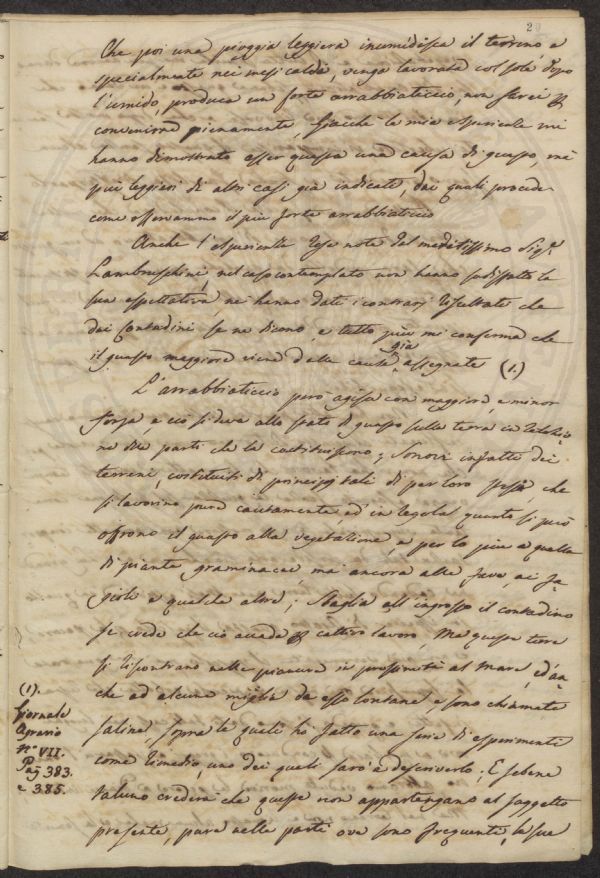 20
Che poi una pioggia leggiera inumidisca il terreno e
specialmente nei mesi caldi, venga lavorata col sole dopo
l'umido, produca un forte arrabbiaticcio, non sarei p
convenirne pienamente, giacchè le mie esperienze mi
hanno dimostrato esser questa una causa di guasto, mà
più leggieri di altri casi già indicati, dai quali procede
come osservammo il più forte arrabbiaticcio
Anche l'esperienze rese note dal meditissimo Sig.r
Lambruschini, nel caso contemplato non hanno sodisfatto la
sua aspettativa, nè hanno dati i contrarj resultati che
dai Contadini se ne dicono, e tutto più mi conferma che
il guasto maggiore viene dalle cause già assegnate (1.)
L'arrabbiaticcio però agisce con maggiore, e minor
forza, e ciò si deve allo stato di guasto sulla terra in relazio
ne alle parti che la costituiscono; Sonovi infatti dei
terreni, costituiti di principj tali di per loro stessi, che
si lavorino pure cautamente, ed in regola quanto si può
offrono il guasto alla vegetazione, e per lo più a quella
di piante graminacee, ma ancora alle fave, ai fa-
gioli e qualche altra; Sbaglia all'ingrosso il contadino
se crede che ciò accada p cattivo lavoro, Ma queste terre
si riscontrano nelle pianure in prossimità al mare, ed an-
che ad alcune miglia da esso lontane, e sono chiamate
saline, sopra le quali hò fatto una serie di esperimenti
come rimedio, uno dei quali sarò a descriverlo; E sebene
taluno crederà che queste non appartengano al soggetto
presente, pure nelle parti ove sono frequenti, le sue
(1).
Giornale
Agrario
N.º VII.
Pag 383.
e 385.